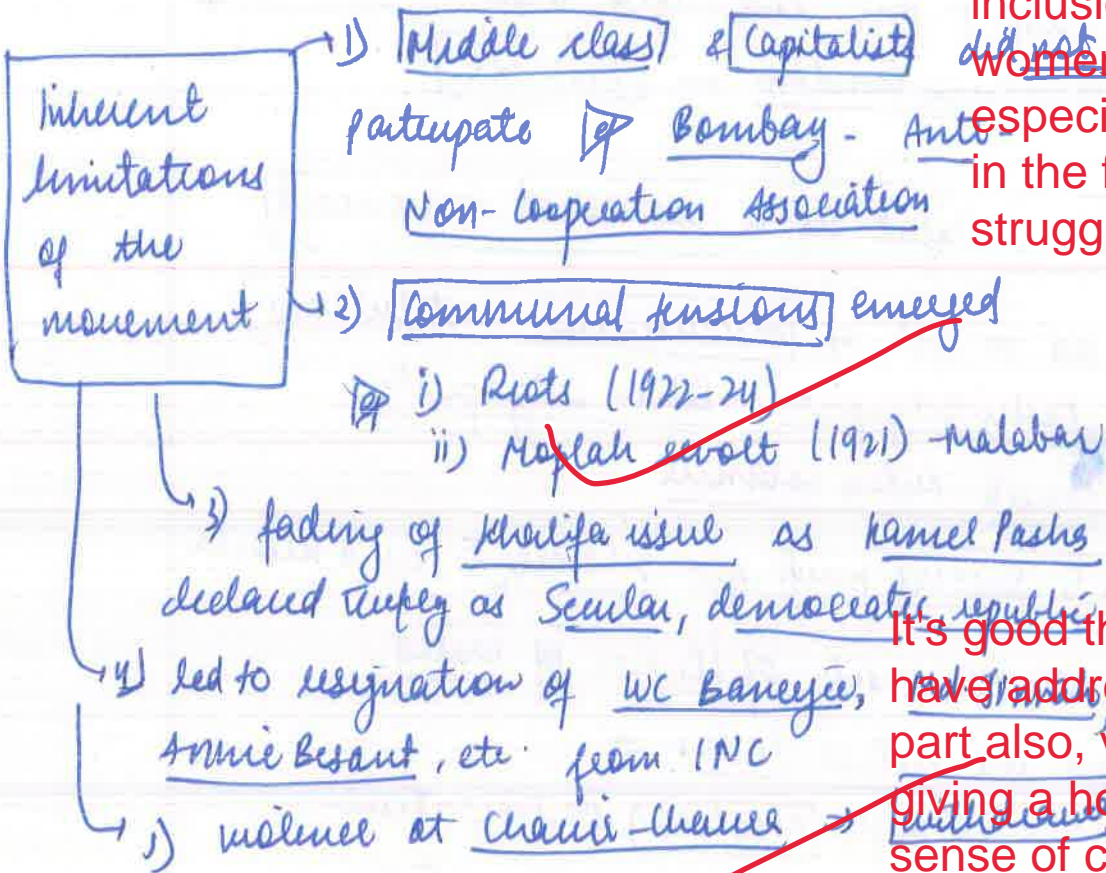 Inherent
limitations
of the
movement
1) Middle class & Capitalists did not
participate eg Bombay - Anti-
Non-Cooperation Association
2) Communal tensions emerged
eg i) Riots (1922-24)
ii) Moplah revolt (1921) - Malabar
3) fading of Khalifa issue as Kamel Pasha
declared Turkey as Secular, democratic, republic
4) led to resignation of WC Banerjee, Md. Jinnah,
Annie Besant, etc. from INC
5) violence at Chauri-Chaura →
women
especi
in the f
strugg
It's good th
have addre
part also,
giving a he
sense of c